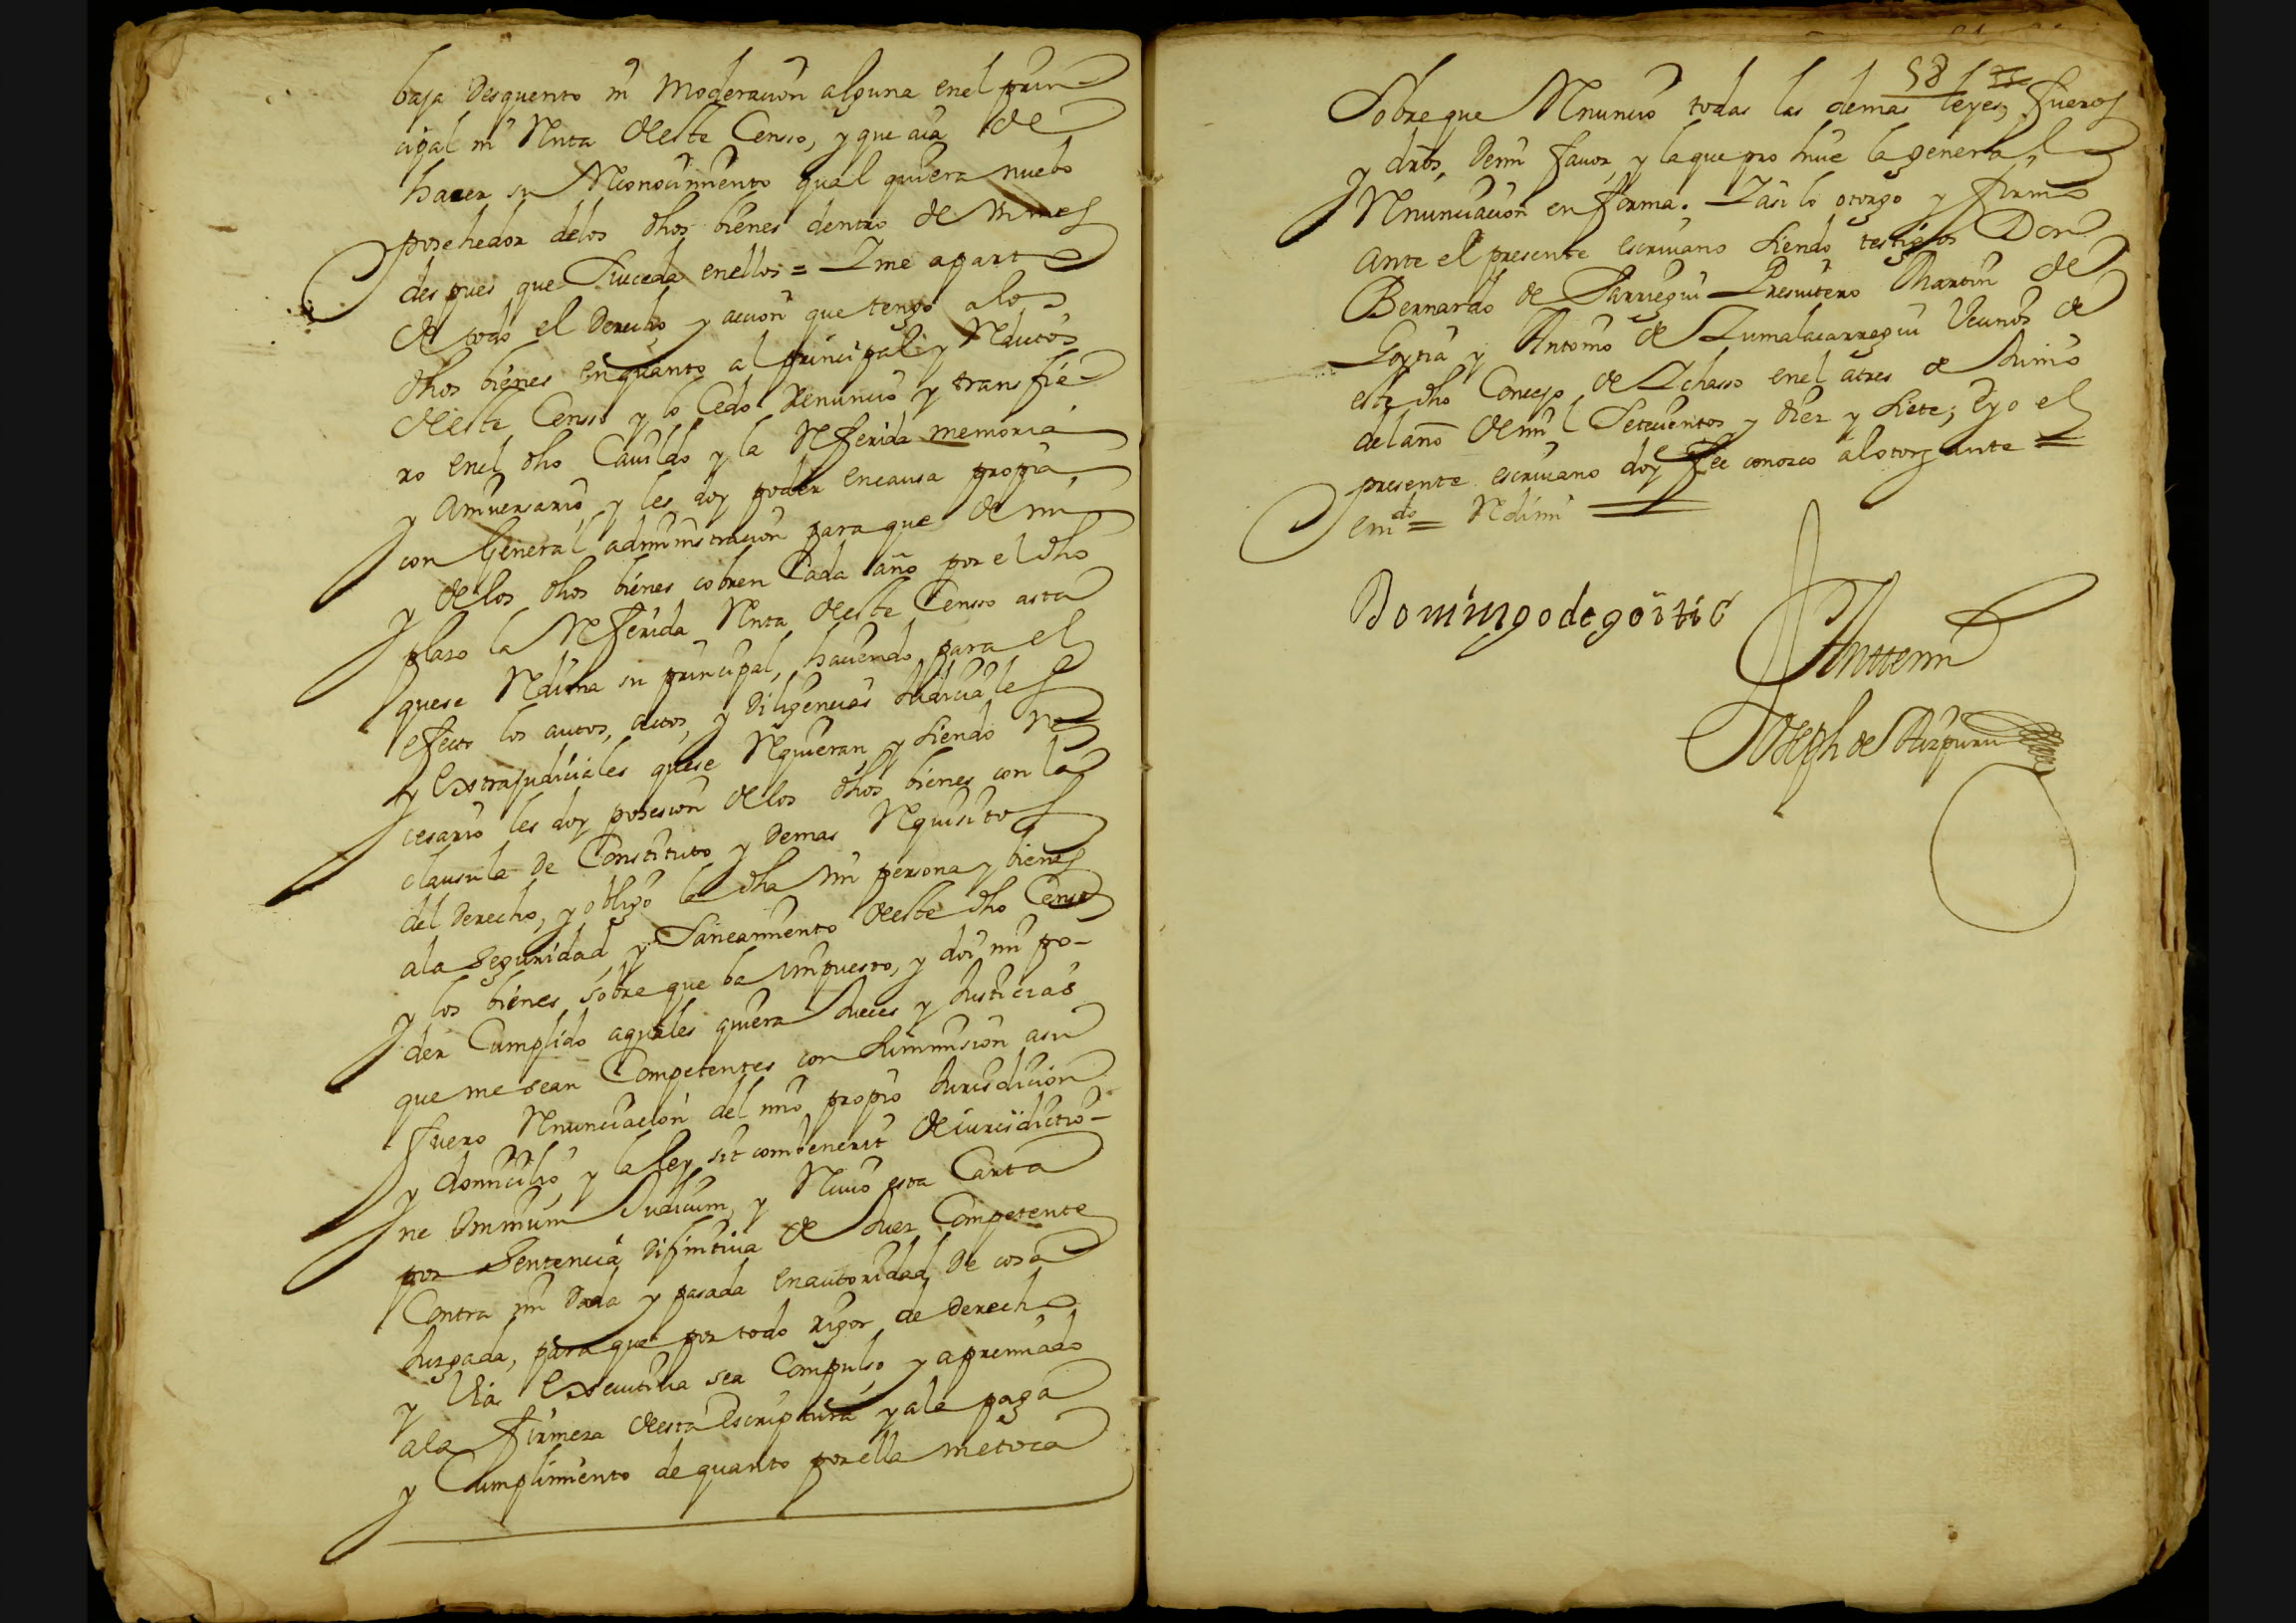 baja desquento ni Moderacion alguna enel prin
cipal ni Renta deeste Censo, y que aia de
hacer su Reconocimiento qual quiera nuebo
posehedor delos dhos bienes dentro de un mes
despues que Suceda enellos = Y me aparto
de todo el Derecho y accion que tengo a los
dhos bienes enquanto al principal y Reditos
deeste Censo y lo Cedo Renuncio y transfie
ro enel dho Cauildo y la Referida memoria
y Aniuersario y les doy poder encausa propia,
con General administracion para que de mi
y de los dhos bienes cobren Cada año por el dho
plazo la Referida Renta deeste Censo asta
quese Redima su principal, haciendo para el
efecto los autos, actos, y Diligencias Judiciales
y Extrajudiciales quese Requieran, y siendo ne
cesario les doy posesion de los dhos bienes con la
clausula de Constituto y demas Requisitos
del Derecho, y obligo la dha mi persona y bienes
ala Seguridad y Saneamiento deeste dho Censo
y los bienes sobre que ba impuesto, y doi mi po-
der Cumplido aquales quiera Jueces y Justicias
que me sean Competentes con sumision a su
fuero Renunciacion del mio propio Jurisdicion
y domicilio y la ley sit combenerit de iurisdictio-
ne omnium Judicum, y Reciuo esta Carta
por Sentencia difinitiua de Juez Competente
Contra mi Dada y pasada en autoridad de cosa
Juzgada, para que por todo rigor de derecho
y Via executiua sea Compulso y apremiado
ala firmeza deesta Escriptura y ala paga
y Cumplimiento de quanto por ella me toca
581
Sobre que Renuncio todas las demas leyes, fueros
y dros, demi fauor, y la que pro hiue la general
Renunciacion en forma. Y asi lo otorgo y firmo
ante el presente escriuano siendo testigos Don
Bernardo de Jarregui Presuitero Martin de
Goytia y Antonio de Zumalacarregui Vecinos de
este dho Concejo de Ychaso enel a tres de Junio
del año de mil Setecientos y diez y siete; E yo el
presente escriuano doy fee conozco al otorgante =
emdo = Redimi =
Domingo de goitia
Antemi
Joseph de Aizpuru